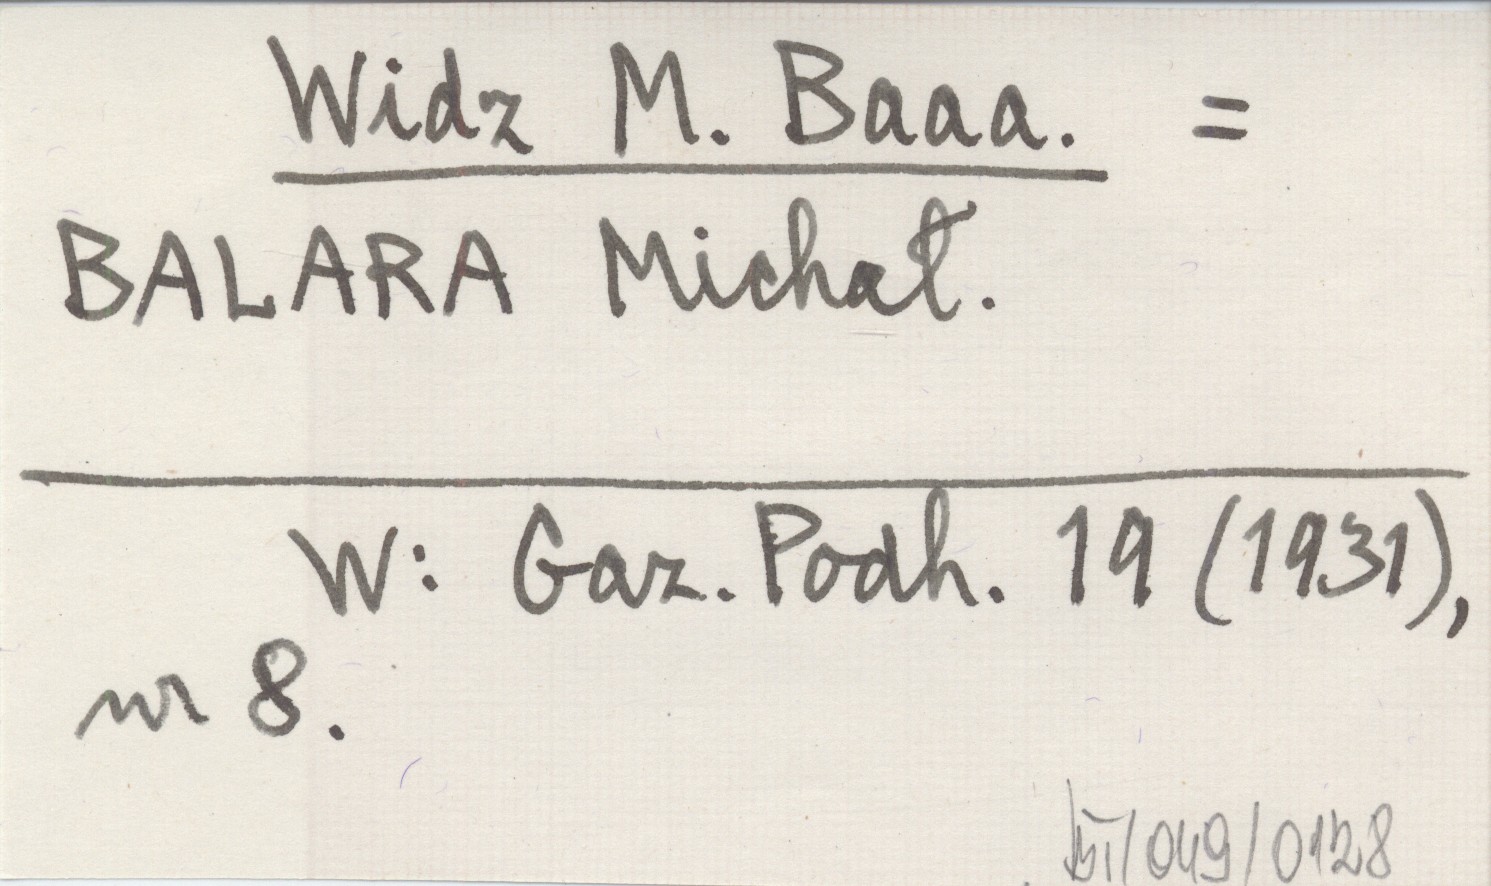 Widz M. Baaa. =
BALARA Michał.
W: Gaz. Podh. 19 (1931),
nr 8.
/049/0128